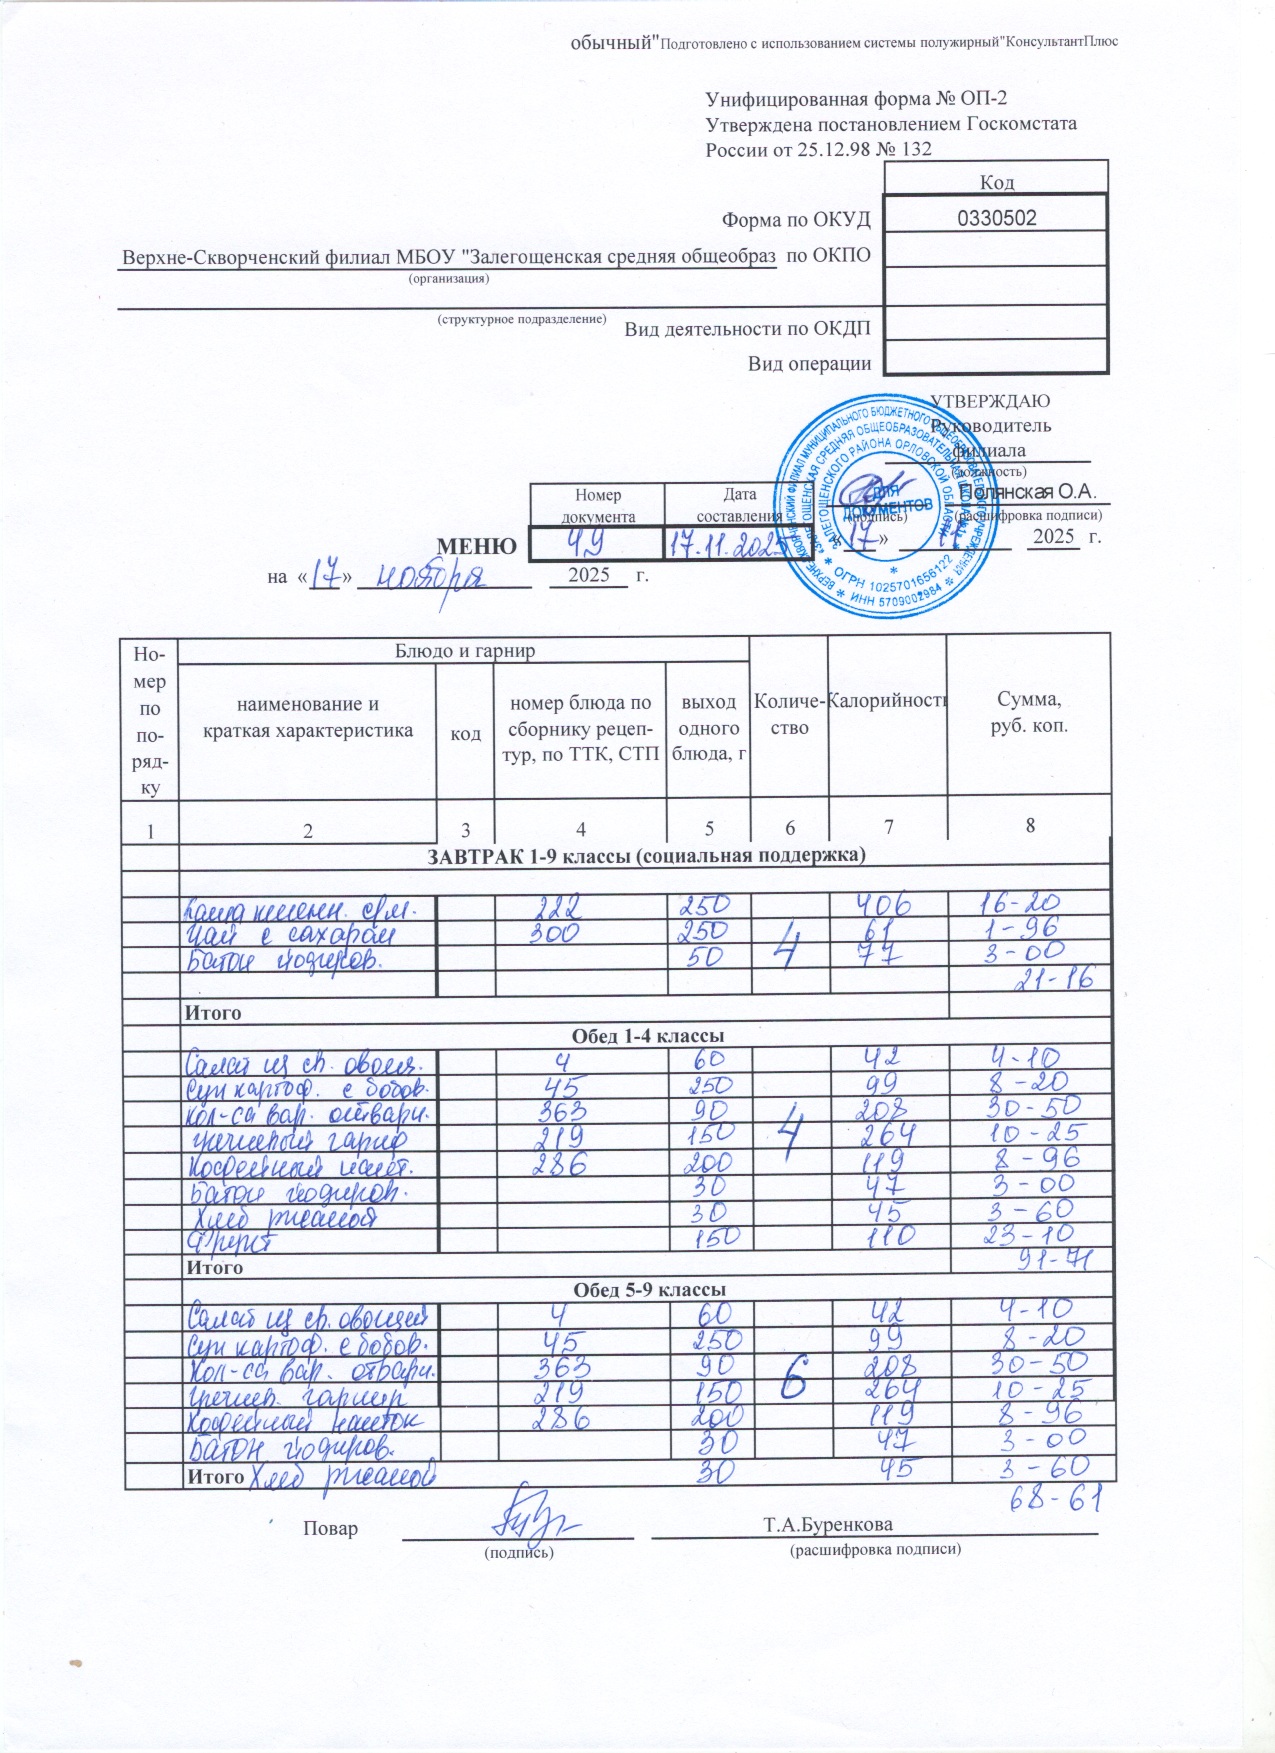 обычный"Подготовлено с использованием системы полужирный"КонсультантПлюс
Унифицированная форма № ОП-2
Утверждена постановлением Госкомстата
России от 25.12.98 № 132
Код
Форма по ОКУД 0330502
Верхне-Скворченский филиал МБОУ "Залегощенская средняя общеобраз по ОКПО
(организация)
(структурное подразделение)
Вид деятельности по ОКДП
Вид операции
УТВЕРЖДАЮ
Руководитель
филиала
(должность)
Полянская О.А.
(подпись) (расшифровка подписи)
«17» 11 2025 г.
ДЛЯ ДОКУМЕНТОВ
ОГРН 1025701656122
ИНН 5709002984
Номер документа Дата составления
МЕНЮ 49 17.11.2025
на «17» ноября 2025 г.
Но-мер по по-ряд-ку Блюдо и гарнир Количе-ство Калорийность Сумма, руб. коп.
наименование и краткая характеристика код номер блюда по сборнику рецеп-тур, по ТТК, СТП выход одного блюда, г
1 2 3 4 5 6 7 8
ЗАВТРАК 1-9 классы (социальная поддержка)
Каша пшенн. 222 250 406 16-20
Чай с сахаром 300 250 4 61 1-96
Батон йодиров. 50 77 3-00
21-16
Итого
Обед 1-4 классы
Салат из св. овощ. 4 60 42 4-10
Суп картоф. с бобов. 45 250 99 8-20
Кол-са вар. отварн. 363 90 4 208 30-50
гречневый гарнир 219 150 264 10-25
Кофейный напит. 286 200 119 8-96
Батон йодиров. 30 47 3-00
Хлеб ржаной 30 45 3-60
Фрукт 150 110 23-10
Итого 91-71
Обед 5-9 классы
Салат из св. овощей 4 60 42 4-10
Суп картоф. с бобов. 45 250 99 8-20
Кол-са вар. отварн. 363 90 6 208 30-50
гречнев. гарнир 219 150 264 10-25
Кофейный напиток 286 200 119 8-96
Батон йодиров. 30 47 3-00
Итого Хлеб ржаной 30 45 3-60
68-61
Повар Т.А.Буренкова
(подпись) (расшифровка подписи)